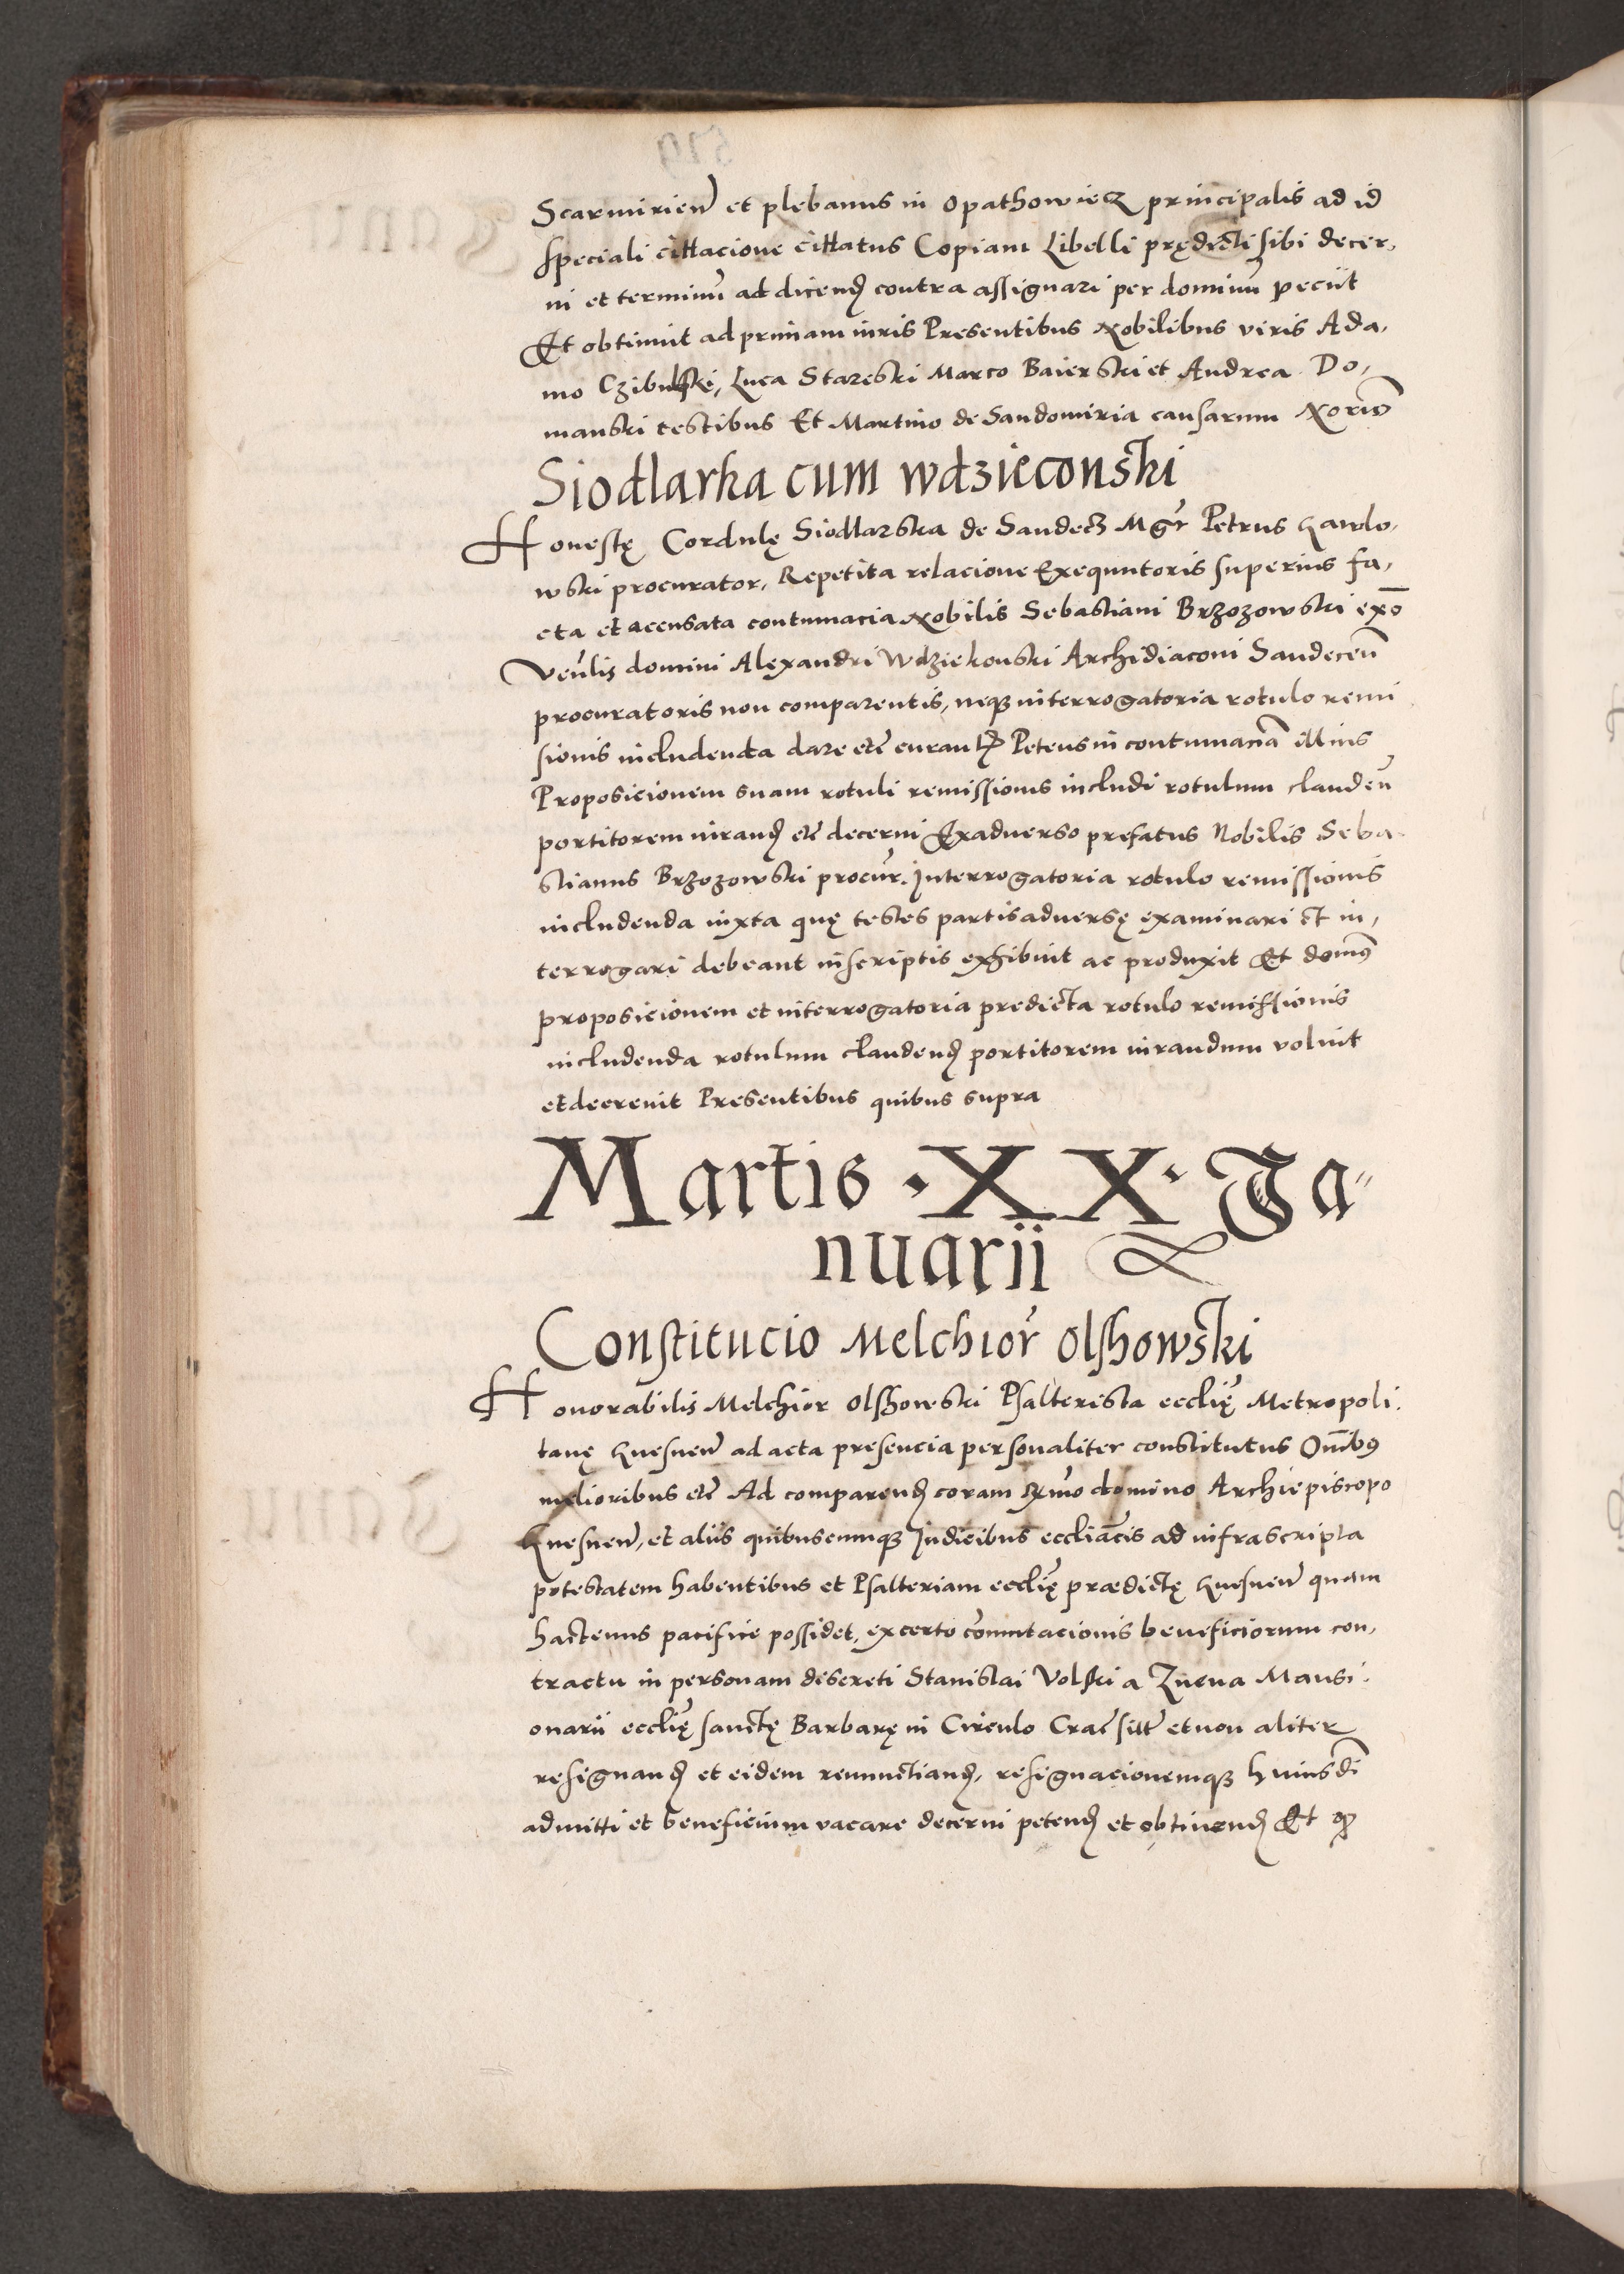 Scarmirień et plebanus in Opathowiecz principalis ad id
speciali cittacione cittatus Copiam Libelli prędicti sibi decer,
ni et terminū ad dicend contra assignari per dominū peciit
Et obtinuit ad primam iuris Presentibus Nobilibus viris Ada,
mo Czibulski, Luca Stareski Marco Baierski et Andrea Do,
manski testibus Et Martino de Sandomiria causarum Norio
Siodlarka cum wdzieconski
Honestę Cordulę Siodlarska de Sandecz Mgr Petrus Gawlo,
wski procurator, Repetita relacione Exequutoris superius fa,
cta et accusata contumacia Nobilis Sebastiani Brzozowski exō
Veńlis domini Alexandri Wdziekonski Archidiaconi Sandeceń
procuratoris non comparentis, neqz interrogatoria rotulo remi
sionis includenda dare etć curantꝭ Petens in contumaciā illius
Proposicionem suam rotuli remissionis includi rotulum claudeń
portitorem iurand etć decerni Exadverso prefatus Nobilis Seba
stianus Brzozowski procur. Interrogatoria rotulo remissionis
includenda iuxta quę testes partis adversę examinari et in,
terrogari debeant in scriptis exhibuit ac produxit Et domūs
proposicionem et interrogatoria predicta rotulo remissionis
includenda rotulum claudend portitorem iurandum voluit
et decrevit Presentibus quibus supra
Martis .XX. Ja"
nuarii
Constitucio Melchior Olshowski
Honorabilis Melchior Olshowski Psalterista ecclię Metropoli.
tanę Gnesneń ad acta presencia personaliter constitutus Omibus
melioribus etć Ad comparend coram Rmo domino Archiepiscopo
Gnesneń, et aliis quibuscumqz Iudicibus eccliacis ad infrascripta
potestatem habentibus et Psalteriam ecclię prædictę Gnesneń quam
hactenus pacifice possidet, ex certo commutacionis beneficiorum con,
tractu in personam discreti Stanislai Volski a Znena Mansi.
onarii ecclię sanctę Barbarę in Circulo Crac sitt et non aliter
resignand et eidem renunctiand, resignacionemqz huiusdi
admitti et beneficium vacare decerni petend et obtinend Et ꝓ